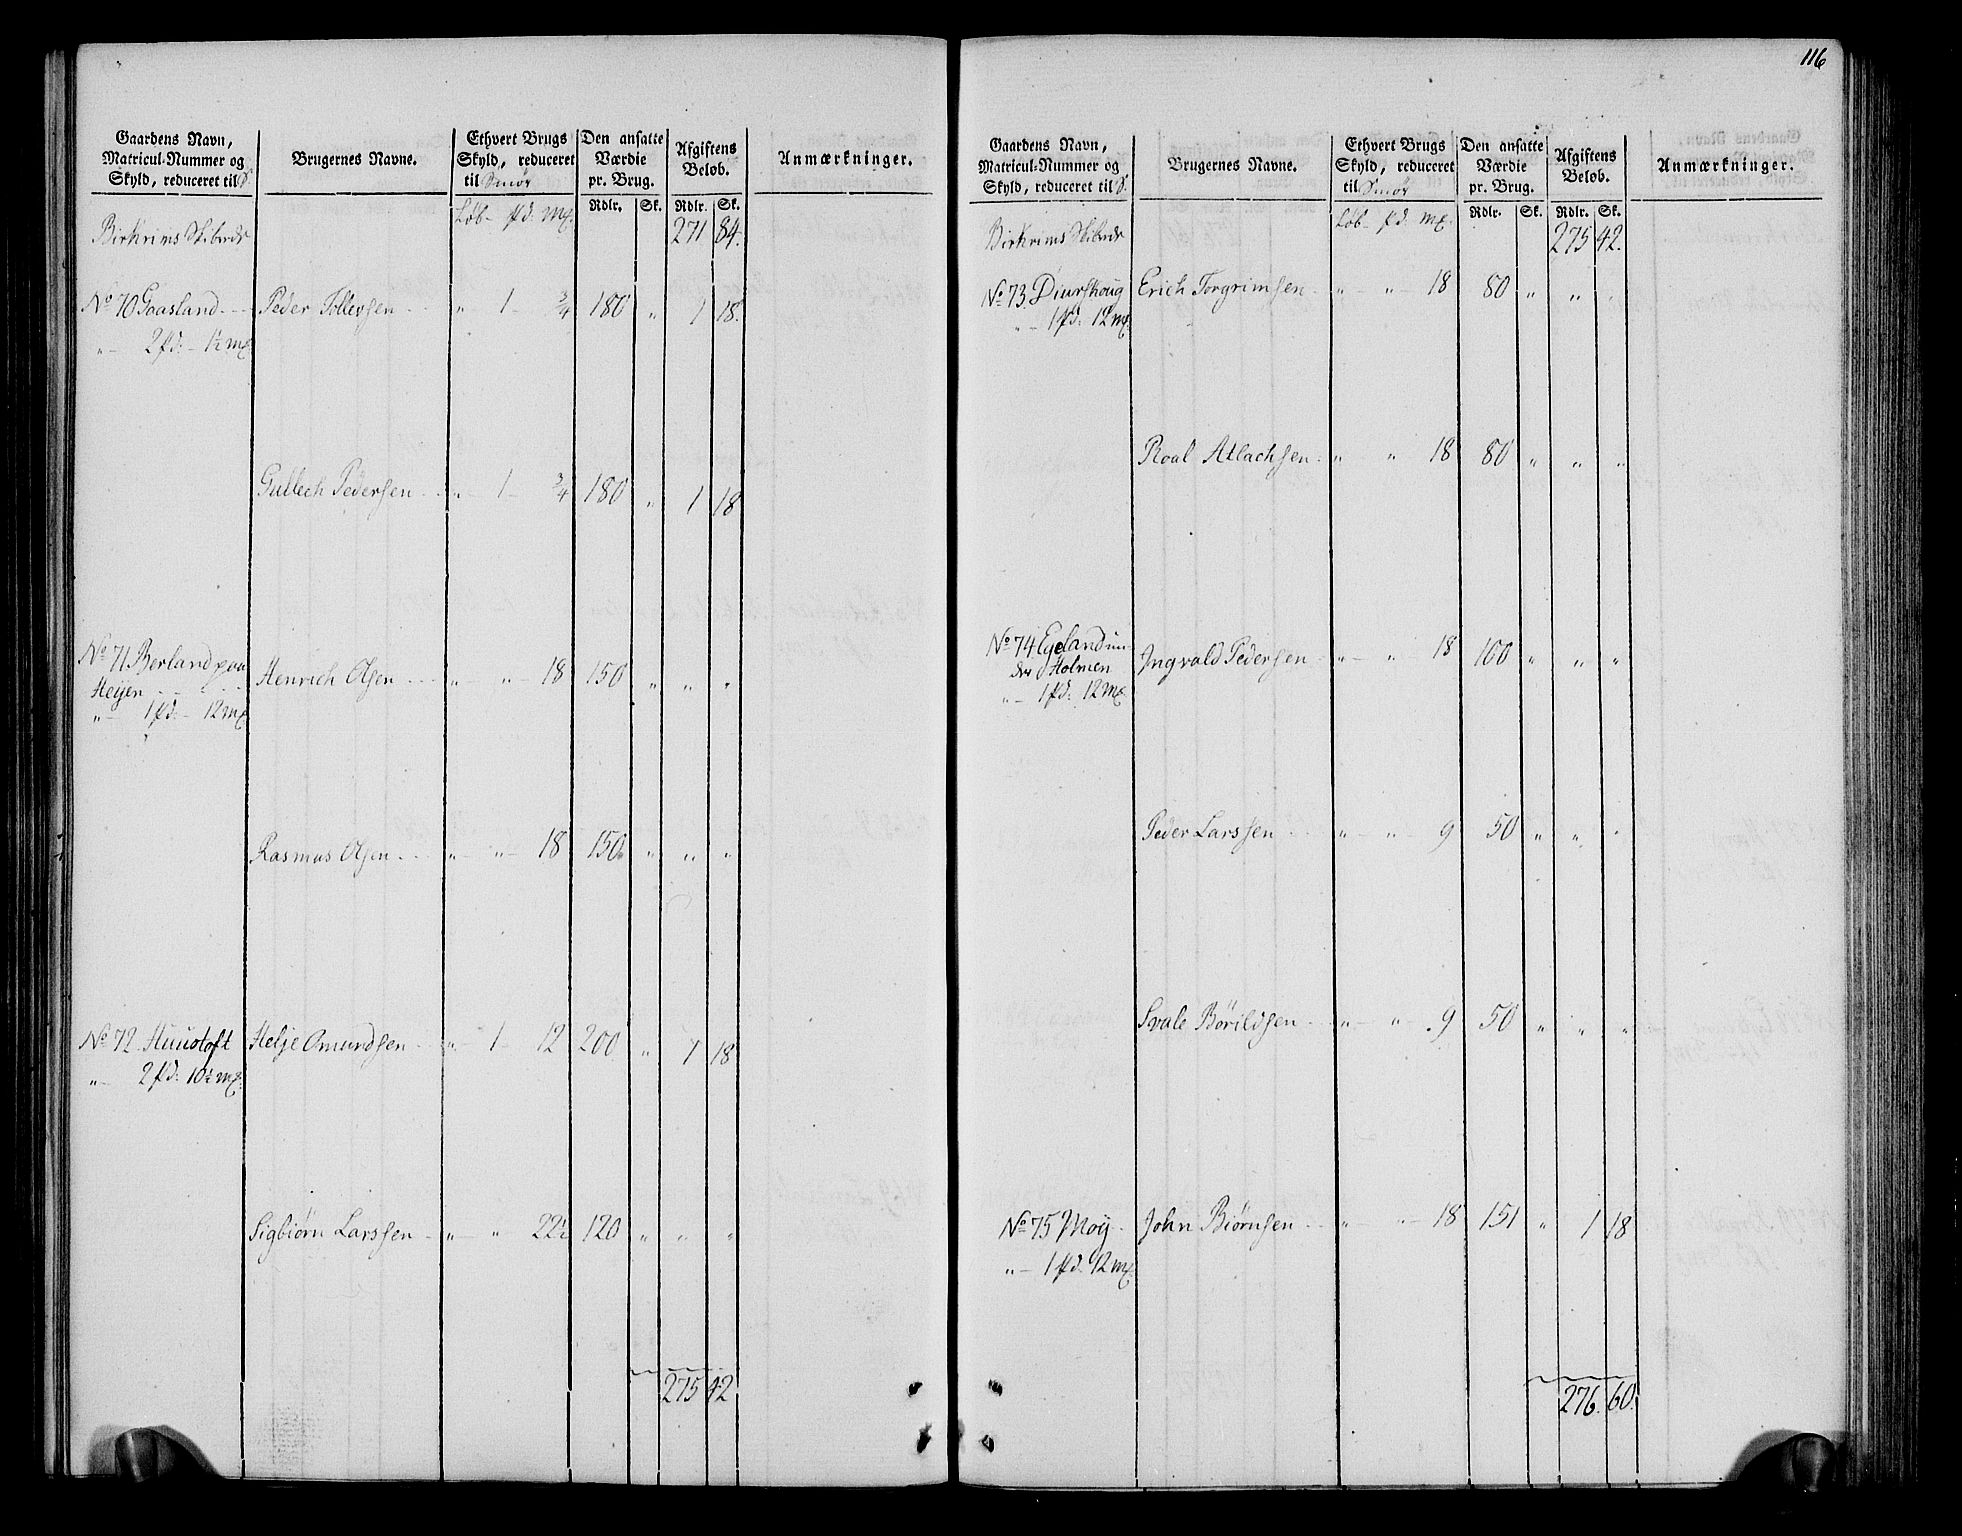 116
Gaardens Navn, Matricul-Nummer og Skyld, reduceret til S. | Brugernes Navne. | Ethvert Brugs Skyld, reduceret til Smör | Den ansatte Værdie pr. Brug. | Afgiftens Beløb. | Anmærkninger.
Løb - pd. mk. | Rdlr. | Sk. | Rdlr. | Sk.
Birkrims Skibrede 271 84.
No 70 Gaasland Peder Tollevsen " 1 - 3/4 180 " 1 18.
" - 2 pd: - 1½ mk
Gullech Pedersen " 1 - 3/4 180 " 1 18
No 71 Berland paa
Heijen Henrich Olsen " - " - 18 150 " " "
" - 1 pd: - 12 mk
Rasmus Olsen " - " - 18 150 " " "
No 72 Huustoft Helje Omundsen " - 1 - 12 200 " 1 18
" - 2 pd: 10½ mk
Sigbiørn Larssen " - " 22½ 120 " " "
275 42
Gaardens Navn, Matricul-Nummer og Skyld, reduceret til S. | Brugernes Navne. | Ethvert Brugs Skyld, reduceret til Smör | Den ansatte Værdie pr. Brug. | Afgiftens Beløb. | Anmærkninger.
Løb - pd. mk. | Rdlr. | Sk. | Rdlr. | Sk.
Birkrims Skibrede 275 42.
No 73 Diurskoug Erich Torgrimsen " - " - 18 80 " " "
" - 1 pd: 12 mk
Roal Atlachsen " - " - 18 80 " " "
No 74 Egeland un-
der Holmen Ingvald Pedersen " - " - 18 100 " " "
" - 1 pd: 12 mk
Peder Larssen " - " - 9 50 " " "
Svale Börildsen " - " - 9 50 " " "
No 75 Moÿ John Biørnsen " - " - 18 151 " 1 18
" - 1 pd. 12 mk
276. 60.